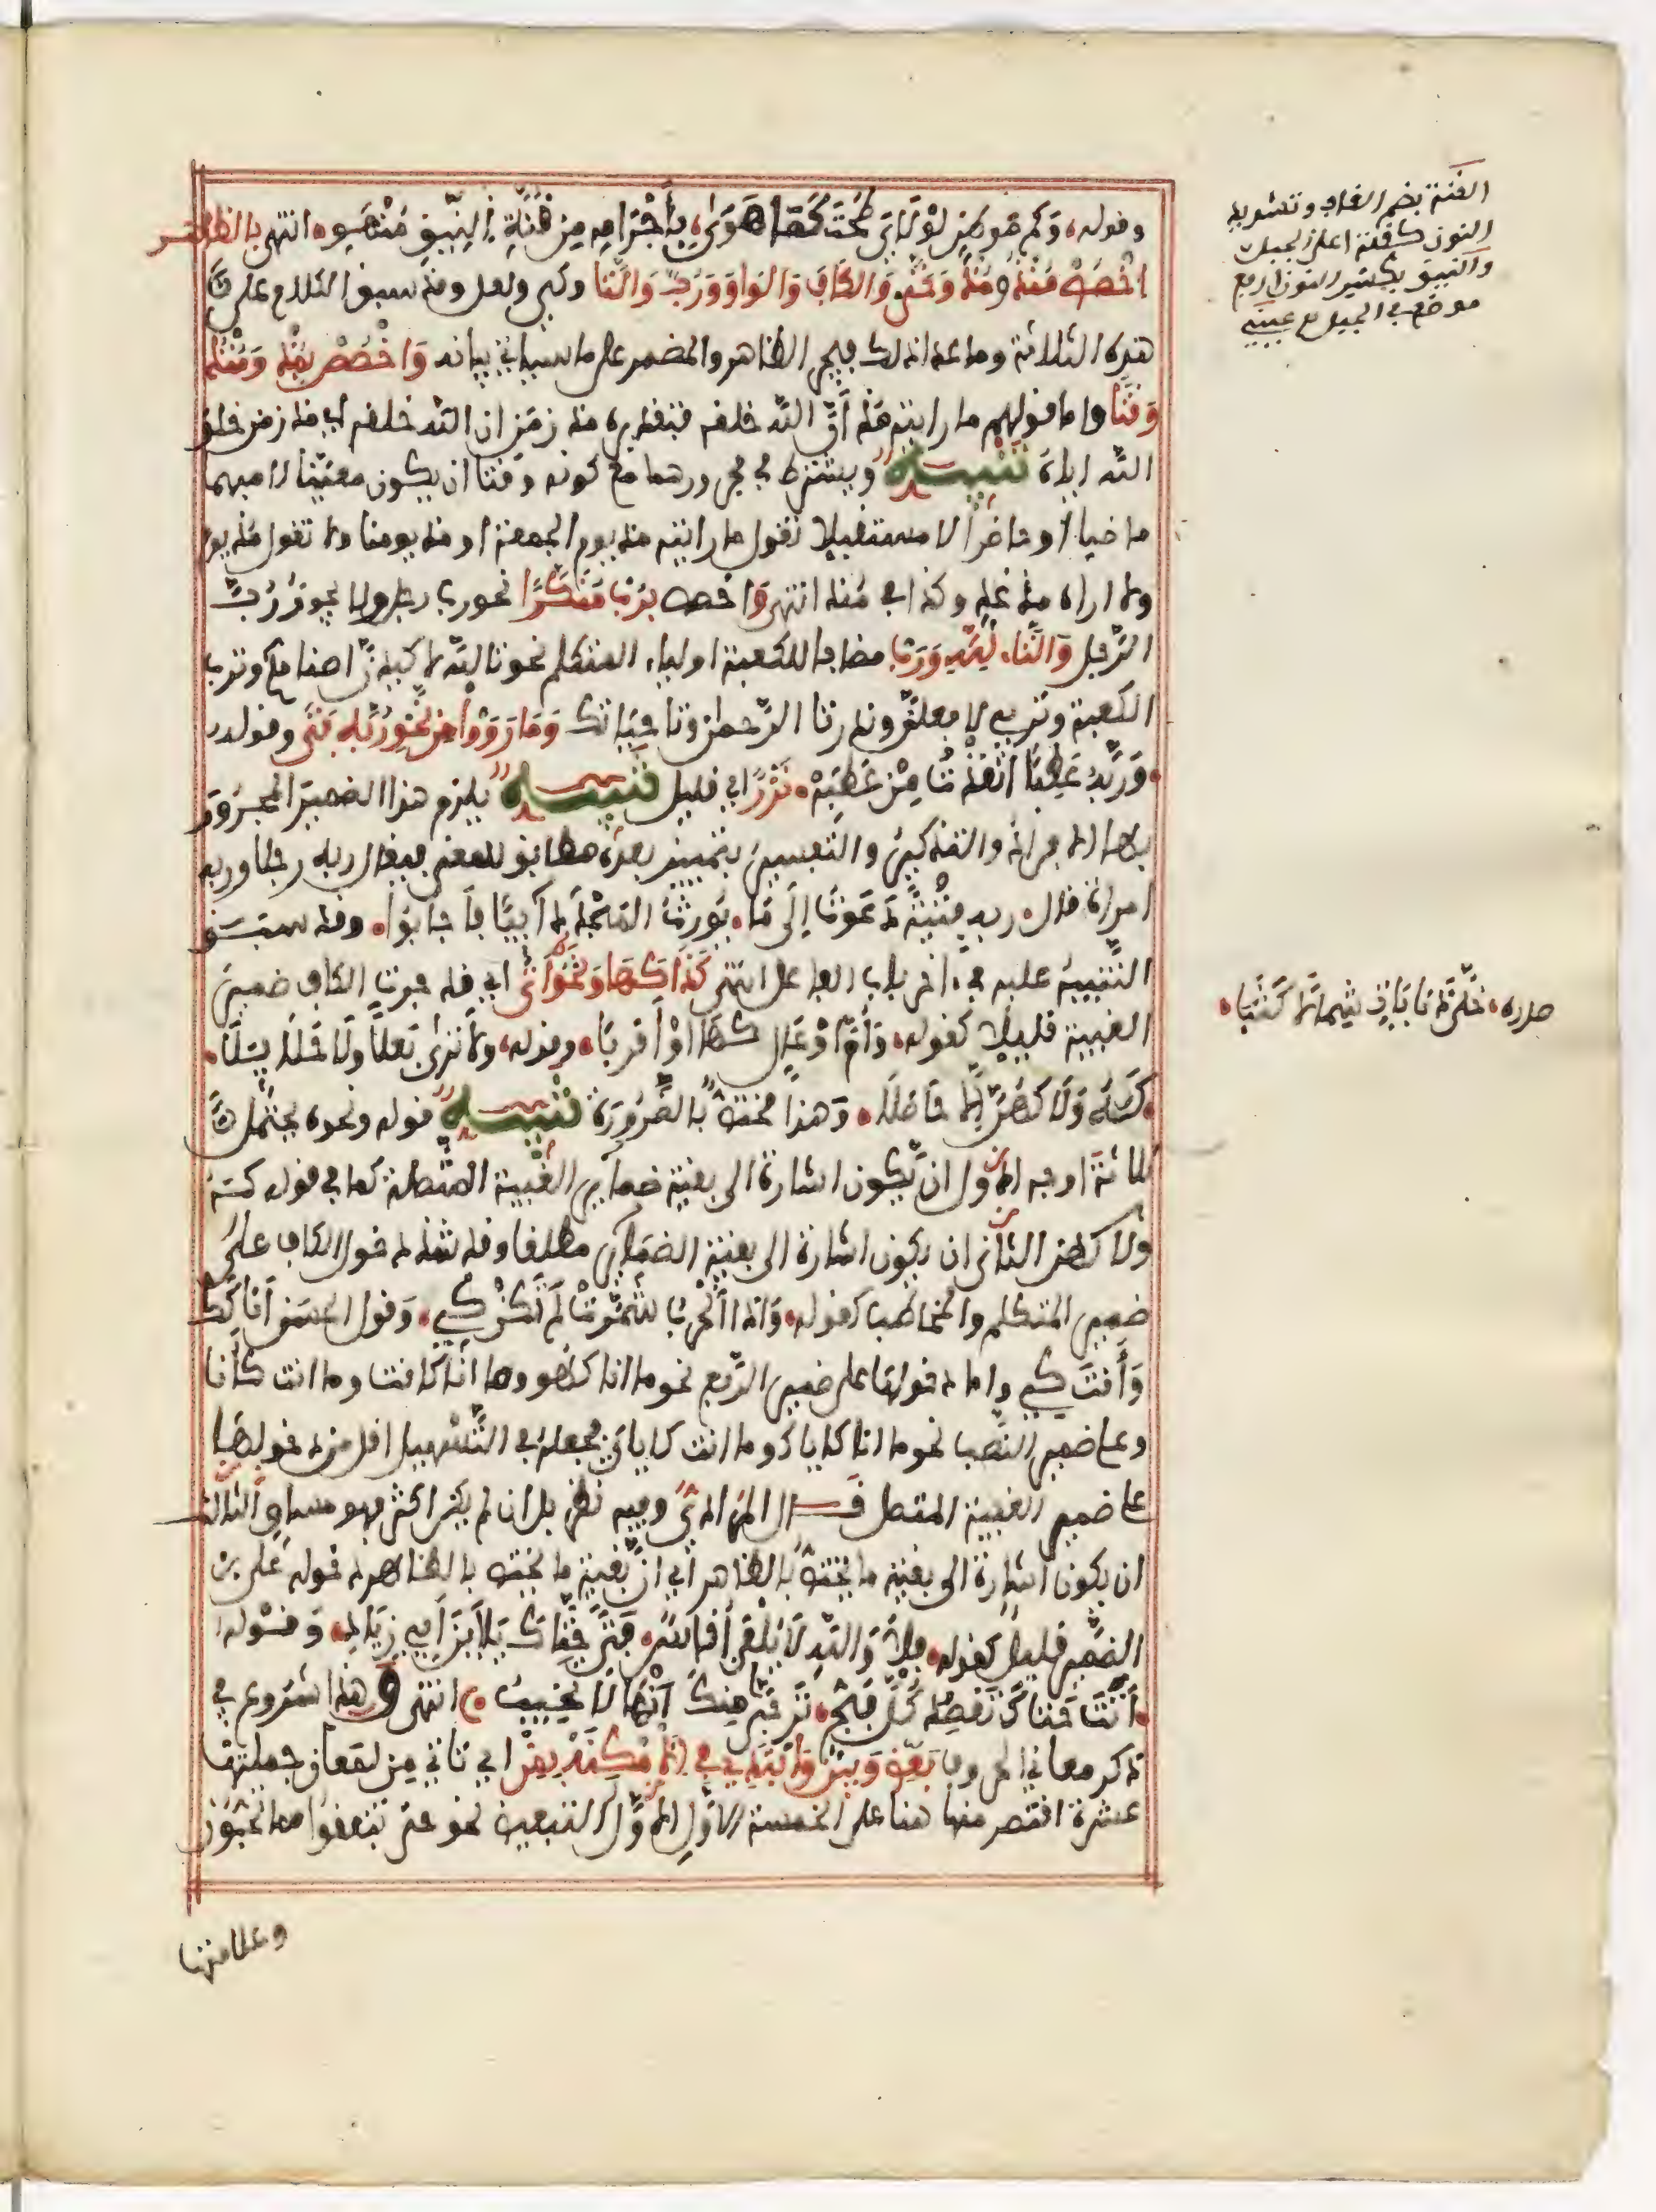 وقوله، وكم موطن لولاي طحت كما هوى، بأجرامه من قنة النيق منهوى، انتهى بالظاهر
اخصص منذ ومذ وحتى والكاف والواو ورب والتا وكي ولعل وقد سبق الكلام على
هذه الثلاثة وما عدا ذلك فيجر الظاهر والمضمر على ما سيأتي بيانه واخصص بمذ ومنذ
وقتا واما قولهم ما رايته مذ أن الله خلقه فتقديره مذ زمن ان الله خلقه اي مذ زمن خلق
الله اياه تنبيه ويشترط في مجرورهما مع كونه وقتا ان يكون معينا لا مبهما
ماضيا او حاضرا لا مستقبلا تقول ما رايته مذ يوم الجمعة او مذ يومنا ولا تقول مذ يوم
ولا اراه مذ غد وكذا في منذ انتهى واخصص برب منكرا نحو رب رجل ولا يجوز رب
الرجل والتاء لله ورب مضافا للكعبة او لياء المتكلم نحو تالله لاكيدن اصنامكم وترب
الكعبة وتربي لافعلن وندر تالرحمن وتحياتك وما رووا من نحو ربه فتى وقوله
وربه عطبا انقذت من عطبه، نزر اي قليل تنبيه يلزم هذا الضمير المجرور
بها الافراد والتذكير والتفسير بتمييز بعده مطابق للمعنى فيقال ربه رجلا وربه
امراة قال، ربه فتية دعوت إلى ما، يورث المجد دائبا فأجابوا، وقد سبق
التنبيه عليه في اخر باب الفاعل انتهى كذا كها ونحوه أتى اي قد جرت الكاف ضمير
الغيبة قليلا كقوله، وأم أوعال كها أو أقربا، وقوله، ولا ترى بعلا ولا حلائلا،
كه ولا كهن إلا حاظلا، وهذا مختص بالضرورة تنبيه قوله ونحوه يحتمل ث
لاثة اوجه الاول ان يكون اشارة الى بقية ضمائر الغيبة المتصلة كما في قوله كه
ولا كهن الثاني ان يكون اشارة الى بقية الضمائر مطلقا وقد شذ دخول الكاف على
ضمير المتكلم والمخاطب كقوله، وإذا الحرب شمرت لم تكن كي، وقول الحسن أنا كك
وأنت كي واما دخولها على ضمير الرفع نحو ما انا كهو وما أنا كأنت وما انت كأنا
وعلى ضمير النصب نحو ما انا كإياك وما انت كإياي فجعله في التسهيل اقل من دخولها
على ضمير الغيبة المتصل قال المرادي وفيه نظر بل ان لم يكن اكثر فهو مساو الثالث
ان يكون اشارة الى بقية ما يختص بالظاهر اي ان بقية ما يختص بالظاهر دخوله على
الضمير قليل كقوله، فلا والله لا يلفي أناس، فتى حتاك يا ابن أبي زياد، وقوله،
أتت حتاك تقصد كل فج، ترجي منك أنها لا تخيب، انتهى وهذا شروع في
ذكر معاني الحروف بعض وبين وابتدئ في الأمكنه بمن اي تاتي من لمعان جملتها
عشرة اقتصر منها هنا على الخمسة الاول الاول التبعيض نحو حتى تنفقوا مما تحبون
وعلامتها
القنة بضم القاف وتشديد
النون كقلة اعلى الجبل
والنيق بكسر النون ارفع
موضع في الجبل
صدره، خلى الذنابات شمالا كثبا،